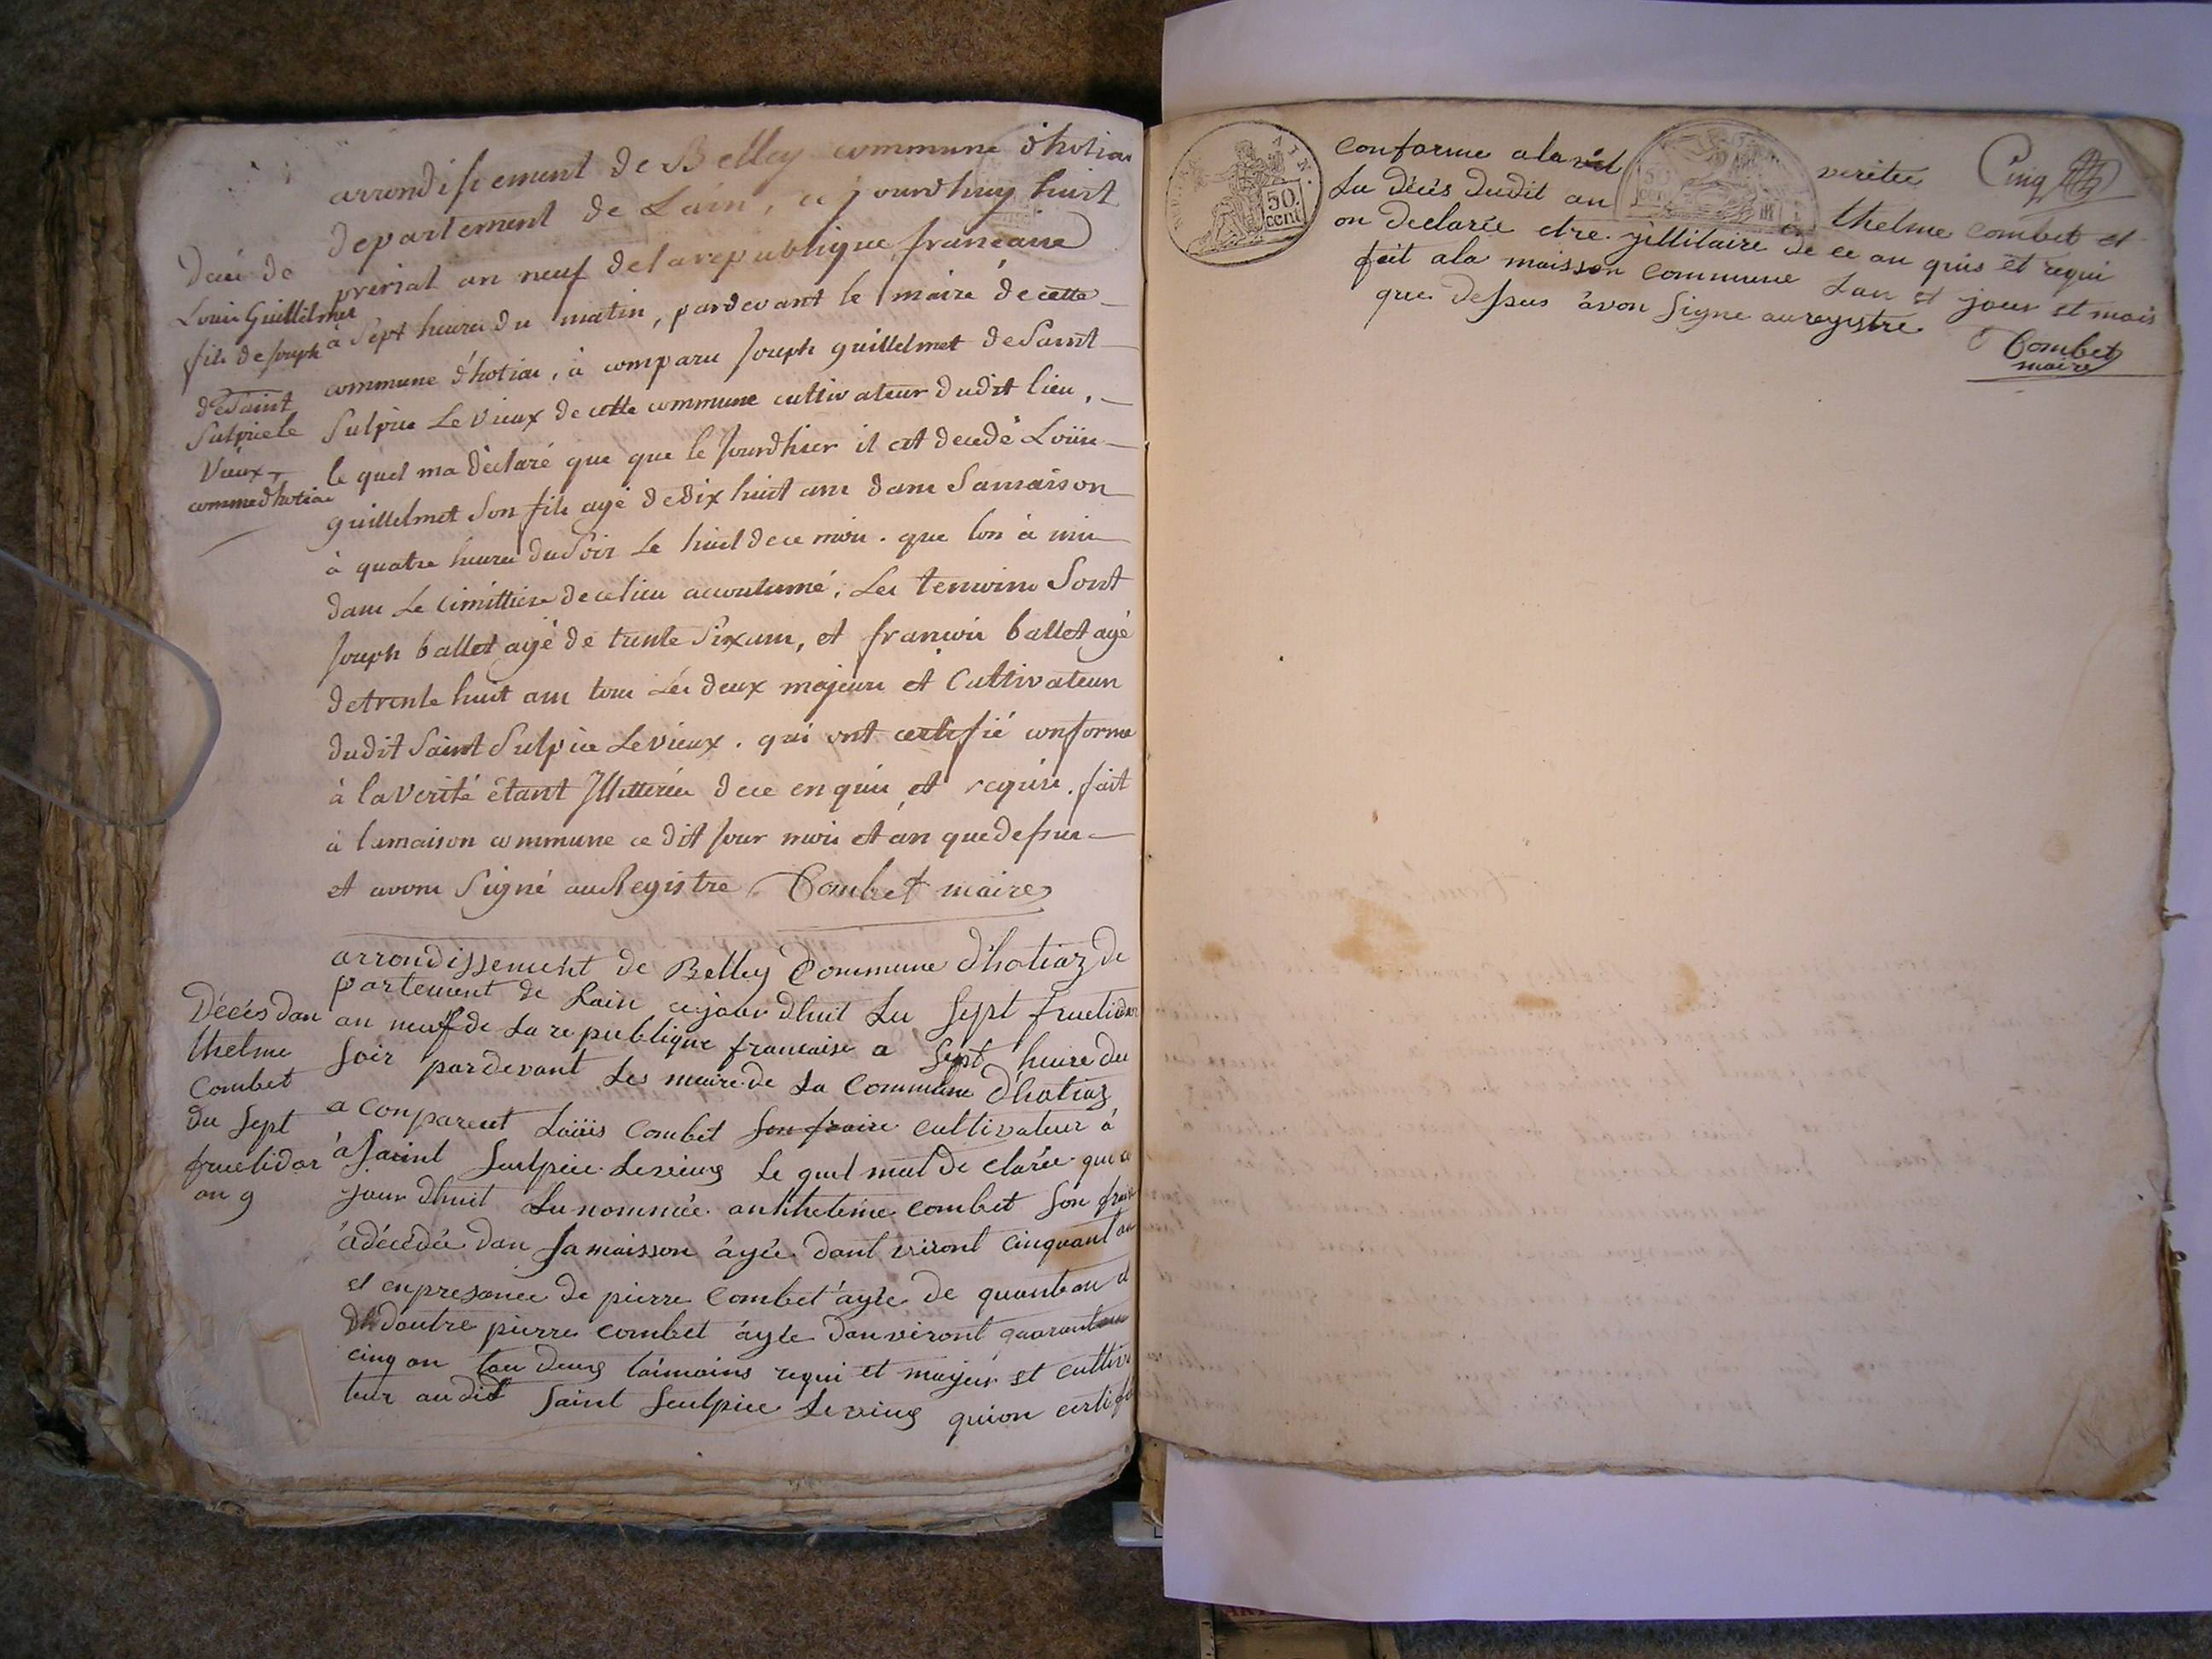 arrondissement de Belley commune d'hotiau
departement de Lain, ce jourdhuy huit
prerial an neuf de la republique francaise
à Sept heures du matin, pardevant le maire de cette
commune d'hotiau, à comparu Joseph guillelmet de Saint
Sulpice Le Vieux de cette commune cultivateur dudit lieu,
le quel ma dèclaré que que le Jourdhier il est decedé Loüis
guillelmet Son fils agé de dix huit ans dans Samaison
à quatre heures du Soir Le huit de ce mois. que lon à mis
dans Le Cimittiere de ce lieu accoutumé, Les temoins Sont
Joseph ballet agé de trente Six ans, et francois ballet agé
de trente huit ans tous Les deux majeurs et Cultivateurs
dudit Saint Sulpice Le vieux. qui ont certifié conforme
à la Verité étant Illitterés de ce enquis et requis. fait
à la maison commune ce dit Jour mois et an que dessus
et avons Signé au Registre Combet maire
Décés de
Louis Guillelmet
fils de Joseph
de Saint
Sulpice le
Vieux
comme d'hotiau
arrondissement de Belley Commune d'hotiaz de
partement de Lain cejour dhuit Lu Sept fructidor
an neuf de La republique francaise a Sept heure du
Soir pardevant Les maire de La Commune d'hotiaz
a conparent Loüis Combet Son fraire cultivateur à
à Saint Seulpice Levieux le quel mat de clarée que ce
jour dhuit Lu nommée anthteleme combet Son fraire
à décédée dan Samaisson àyée dant viront cinquant an
et enpresance de pierre Combet àyée de quantean et
dodoutre pierre combet àyée dan viront quarant
cinq an tou deux taimoins requi et majeur et cultiva
teur audit Saint Seulpice Le vieux quion certifié
Décés dan
thelme
Combet
du Sept
fructidor
an 9
AIN.
50.
cent
conforme ala veritée
Cinq
Lu décés dudit an thelme combet et
on declarée etre yillitaire de ce an quis et requi
fait ala maisson Commune Lan et jour et mois
que dessus àvon Signe auregistre
Combet
maire